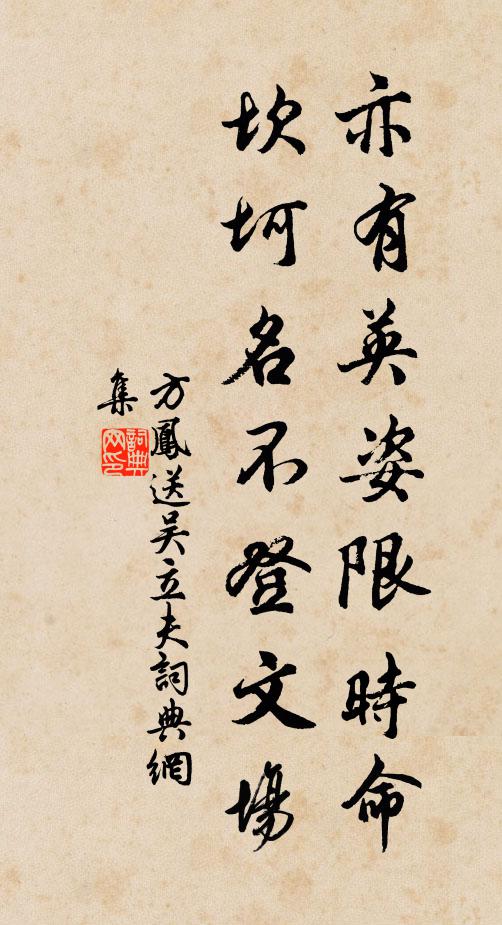 亦有英姿限時命
坎坷名不登文場
方鳳送吴立夫詞典網
集
詞典網印